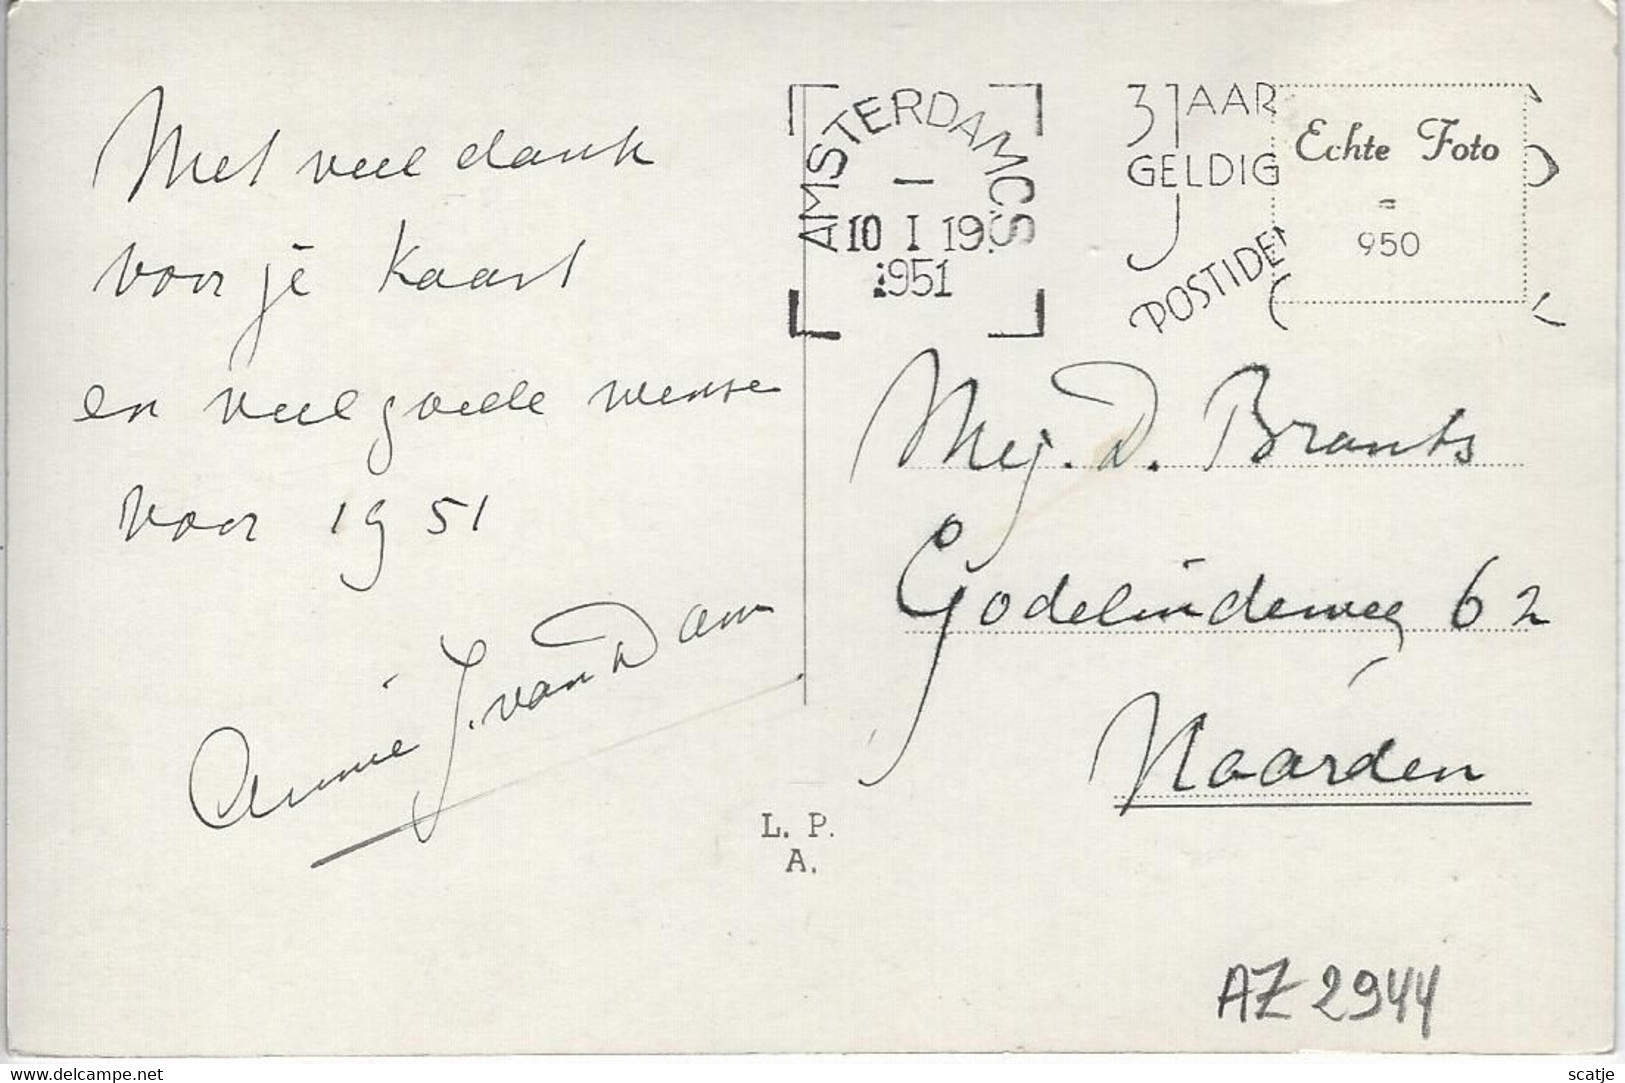 Met veel dank
voor je kaart
en veel goede wense
voor 1951
Annie J. van Dam
AMSTERDAM CS
1
10 I 19
1951
3 JAAR
GELDIG
POSTIDE
Echte Foto
=
950
Mej. D. Brants
Godelindeweg 62
Naarden
L. P.
A.
AZ 2944
www.delcampe.net
scatje